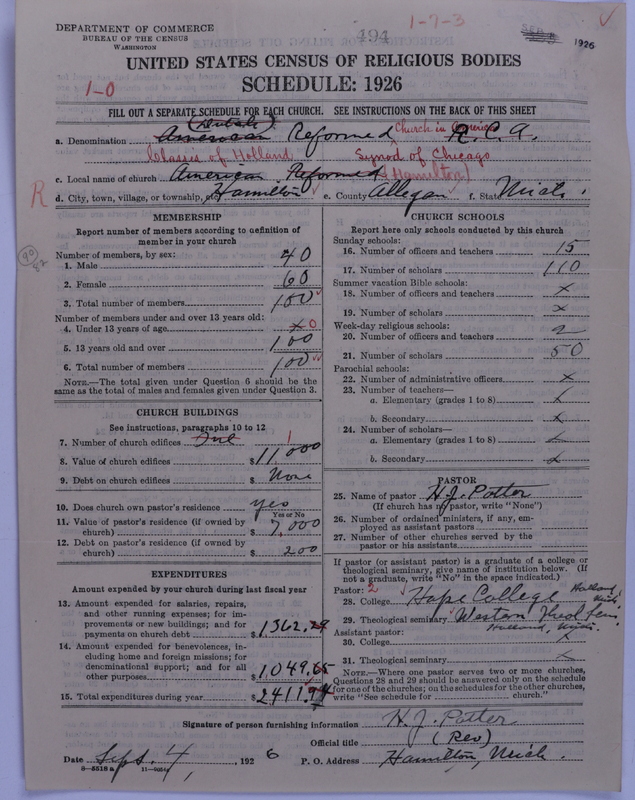 1-7-3
DEPARTMENT OF COMMERCE
BUREAU OF THE CENSUS
WASHINGTON
494
1926
UNITED STATES CENSUS OF RELIGIOUS BODIES
SCHEDULE: 1926
1-0
FILL OUT A SEPARATE SCHEDULE FOR EACH CHURCH. SEE INSTRUCTIONS ON THE BACK OF THIS SHEET
a. Denomination American Reformed Church in America R.C.A.
Classes of Holland Synod of Chicago
c. Local name of church American Reformed (Hamilton)
R
d. City, town, village, or township, etc. Hamilton e. County Allegan f. State Mich.
MEMBERSHIP
Report number of members according to definition of
member in your church
Number of members, by sex:
1. Male 40
2. Female 60
3. Total number of members 100
Number of members under and over 13 years old:
4. Under 13 years of age x 0
5. 13 years old and over 100
6. Total number of members 100
NOTE.—The total given under Question 6 should be
same as the total of males and females given under Question 3.
CHURCH BUILDINGS
See instructions, paragraphs 10 to 12
7. Number of church edifices One 1
8. Value of church edifices $11,000
9. Debt on church edifices $ None
10. Does church own pastor's residence yes
Yes or No
11. Value of pastor's residence (if owned by
church) $ 7,000
12. Debt on pastor's residence (if owned by
church) $ 200
EXPENDITURES
Amount expended by your church during last fiscal year
13. Amount expended for salaries, repairs,
and other running expenses; for im-
provements or new buildings; and for
payments on church debt $1362.29
14. Amount expended for benevolences, in-
cluding home and foreign missions; for
denominational support; and for all
other purposes $1,049.65
15. Total expenditures during year $2411.94
CHURCH SCHOOLS
Report here only schools conducted by this church
Sunday schools:
16. Number of officers and teachers 15
17. Number of scholars 110
Summer vacation Bible schools:
18. Number of officers and teachers x
19. Number of scholars x
Week-day religious schools:
20. Number of officers and teachers 2
21. Number of scholars 50
Parochial schools:
22. Number of administrative officers x
23. Number of teachers—
a. Elementary (grades 1 to 8) x
b. Secondary x
24. Number of scholars—
a. Elementary (grades 1 to 8) x
b. Secondary x
PASTOR
25. Name of pastor H. J. Potter
(If church has no pastor, write "None")
26. Number of ordained ministers, if any, em-
ployed as assistant pastors
27. Number of other churches served by the
pastor or his assistants
If pastor (or assistant pastor) is a graduate of a college or
theological seminary, give name of institution below. (If
not a graduate, write "No" in the space indicated.)
Pastor: 2
28. College Hope College Holland, Mich.
29. Theological seminary Western Theol Sem.
Holland, Mich.
Assistant pastor:
30. College x
31. Theological seminary x
NOTE.—Where one pastor serves two or more churches,
Questions 28 and 29 should be answered only on the schedule
for one of the churches; on the schedules for the other churches,
write "See schedule for church."
Signature of person furnishing information H. J. Potter
Official title (Rev)
Date Sept. 4, 1926 P. O. Address Hamilton, Mich.
8-5518a 11-9051